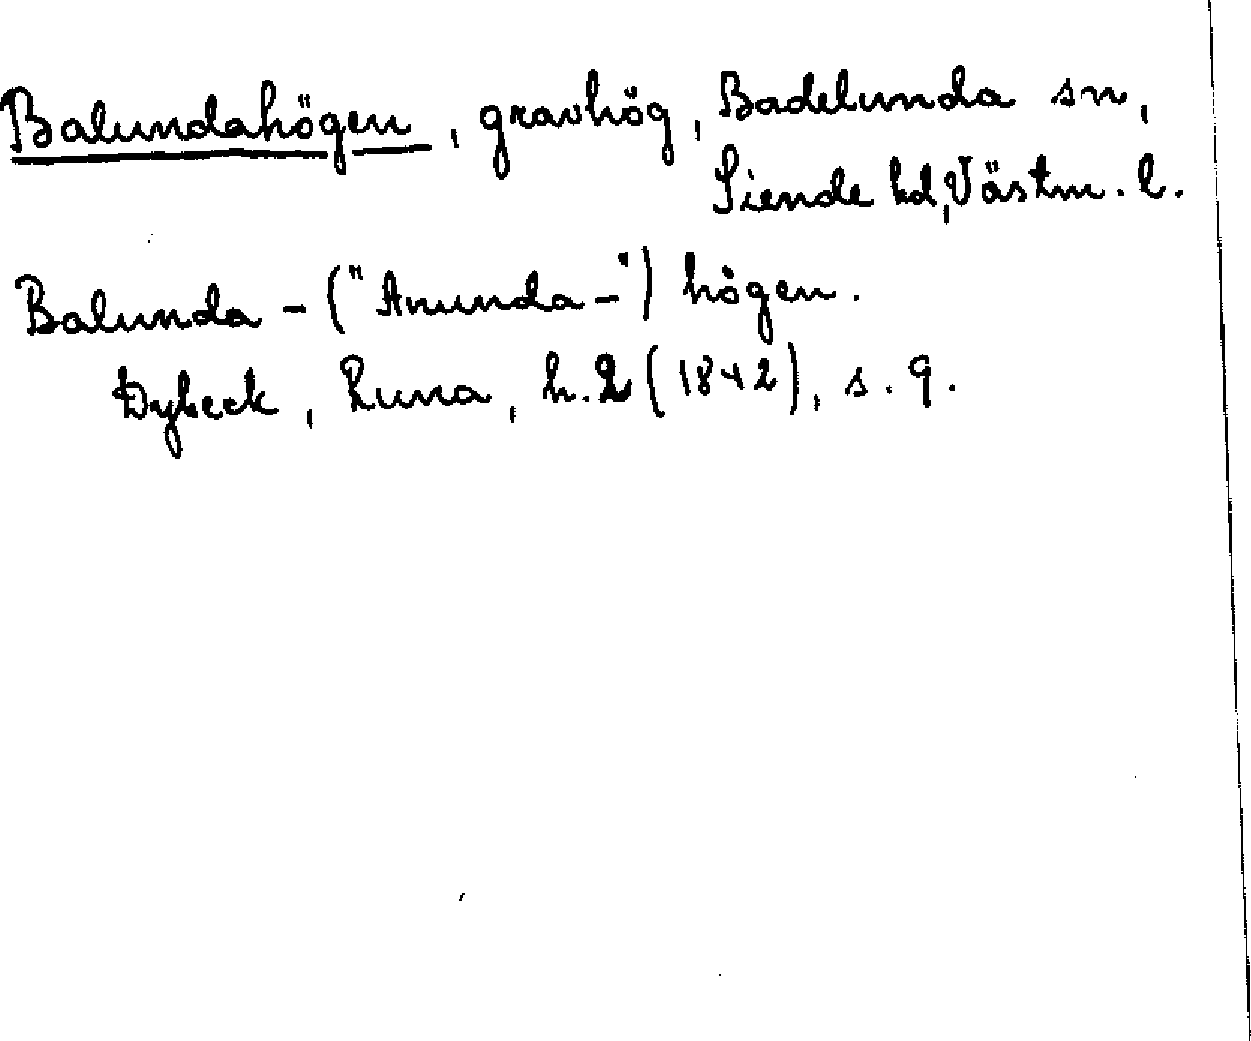 Balundahögen, gravhög, Badelunda sn,
Siende hd, Västm. l.
Balunda-("Anunda-") högen.
Dybeck, Runa, h. 2 (1842), s. 9.